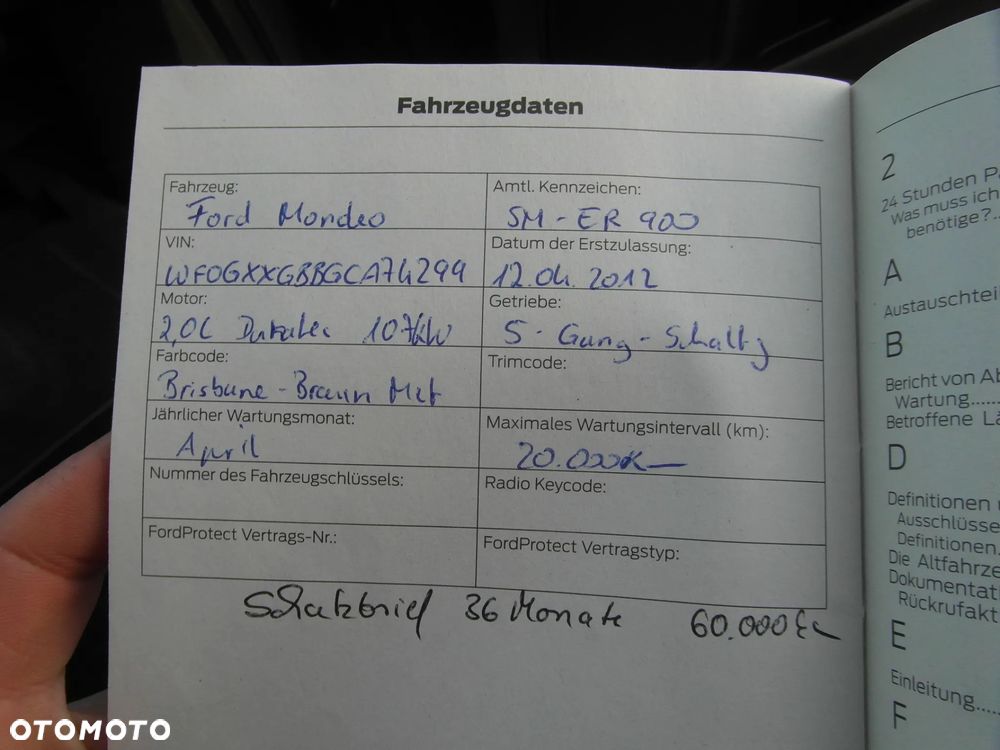 Fahrzeugdaten
Fahrzeug:
Ford Mondeo
Amtl. Kennzeichen:
SM - ER 900
VIN:
WF0GXXGBBGCA74299
Datum der Erstzulassung:
12.04.2012
Motor:
2,0L Duratec 107kW
Getriebe:
5-Gang-Schaltg
Farbcode:
Brisbane-Braun Met
Trimcode:
Jährlicher Wartungsmonat:
April
Maximales Wartungsintervall (km):
20.000K
Nummer des Fahrzeugschlüssels:
Radio Keycode:
FordProtect Vertrags-Nr.:
FordProtect Vertragstyp:
Schutzbrief 36 Monate 60.000
2
24 Stunden
Was muss ich
benötige?..
A
Austauschtei
B
Bericht von
Wartung......
Betroffene
D
Definitionen
Ausschlüsse
Definitionen.
Die Altfahrze
Dokumentat
Rückrufakt
E
Einleitung.....
F
OTOMOTO